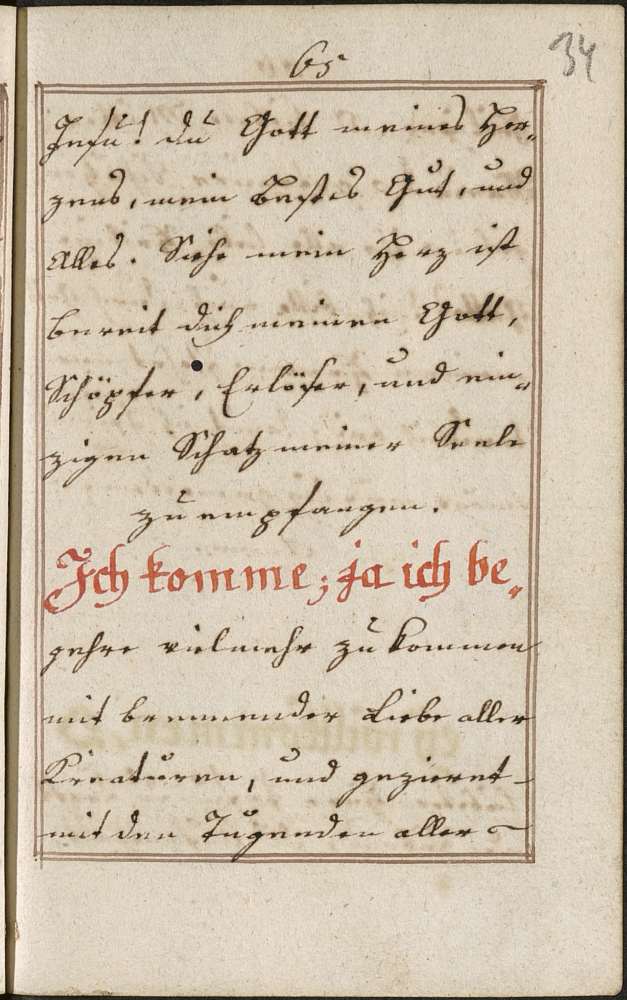 65
34
Jesu! du Gott meines Her„
zens, mein bestes Gut, und
Alles. Siehe mein Herz ist
bereit dich meinen Gott,
Schöpfer, Erlöser, und ein„
zigen Schatz meiner Seele
zu empfangen.
Ich komme; ja ich be„
gehre vielmehr zu kommen
mit brennender Liebe aller
Kreaturen, und gezieret
mit den Tugenden aller